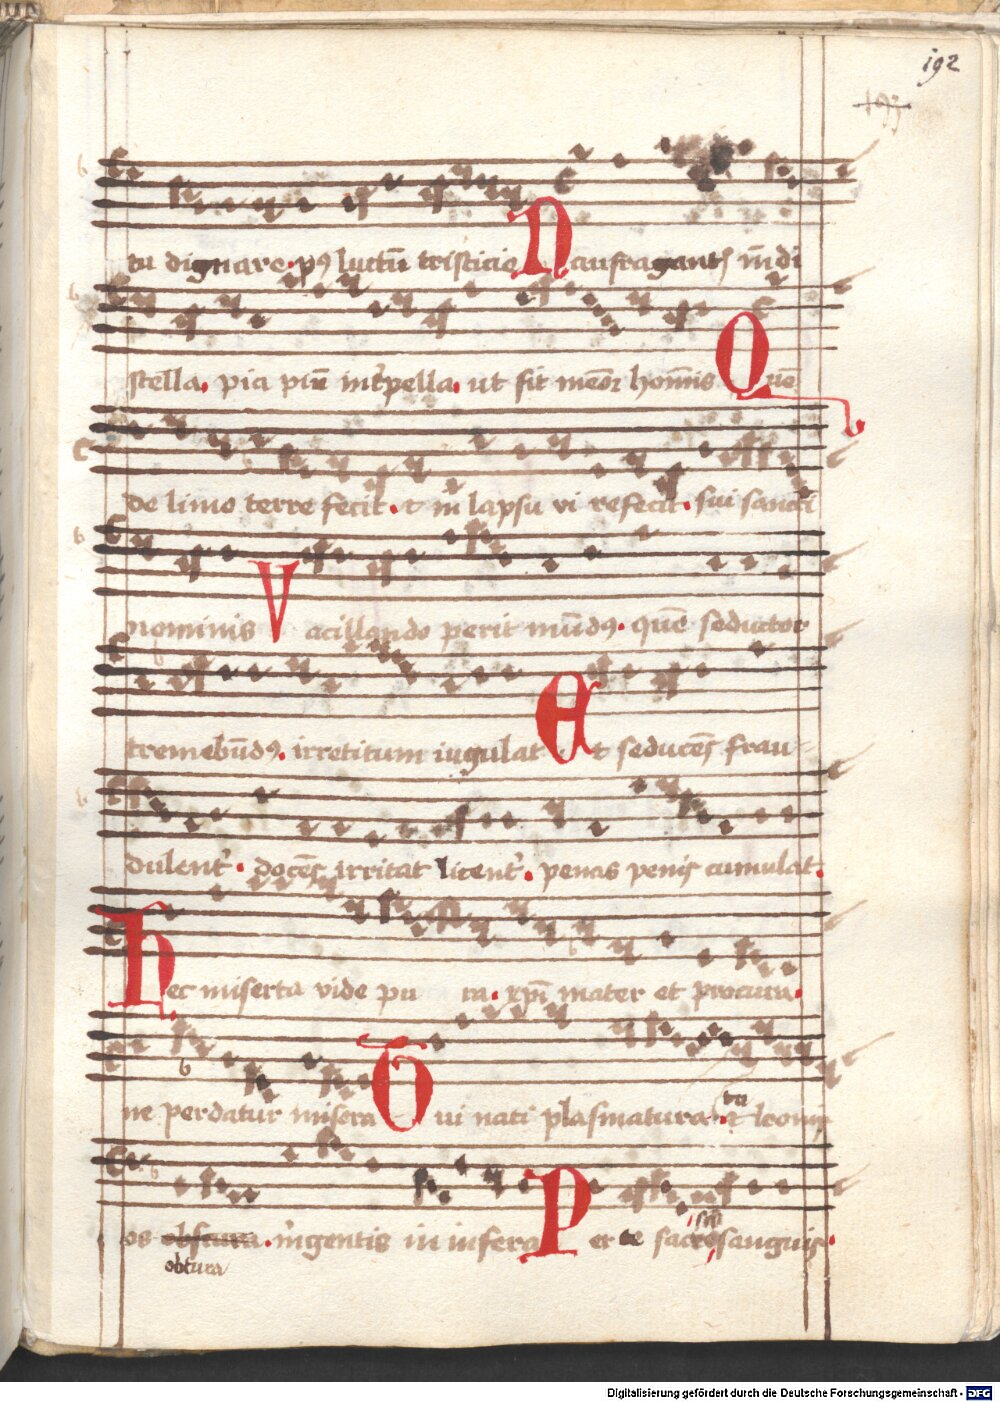 192
tu dignare · pꝰ luctū tristicie Naufragantꝭ mūdi
stella · pia piū int̄pella · ut sit memor hoīnis Quē
de limo terre fecit · et in lapsu vi refecit · sui sancti
nominis Vacillando perit mūdꝰ · quē seductor
tremebūdꝰ · irretitum iugulat Et seducēs frau-
dulent̄ · docēs irritat licent̄ · penas penis cumulat ·
Hec miserta vide pura · xp̄i mater et procura ·
ne perdatur misera Tui nati plasmatura · tu et leonis
os obstura · īngentis in infera Per te sacrosanguis ·
obtura
Digitalisierung gefördert durch die Deutsche Forschungsgemeinschaft - DFG